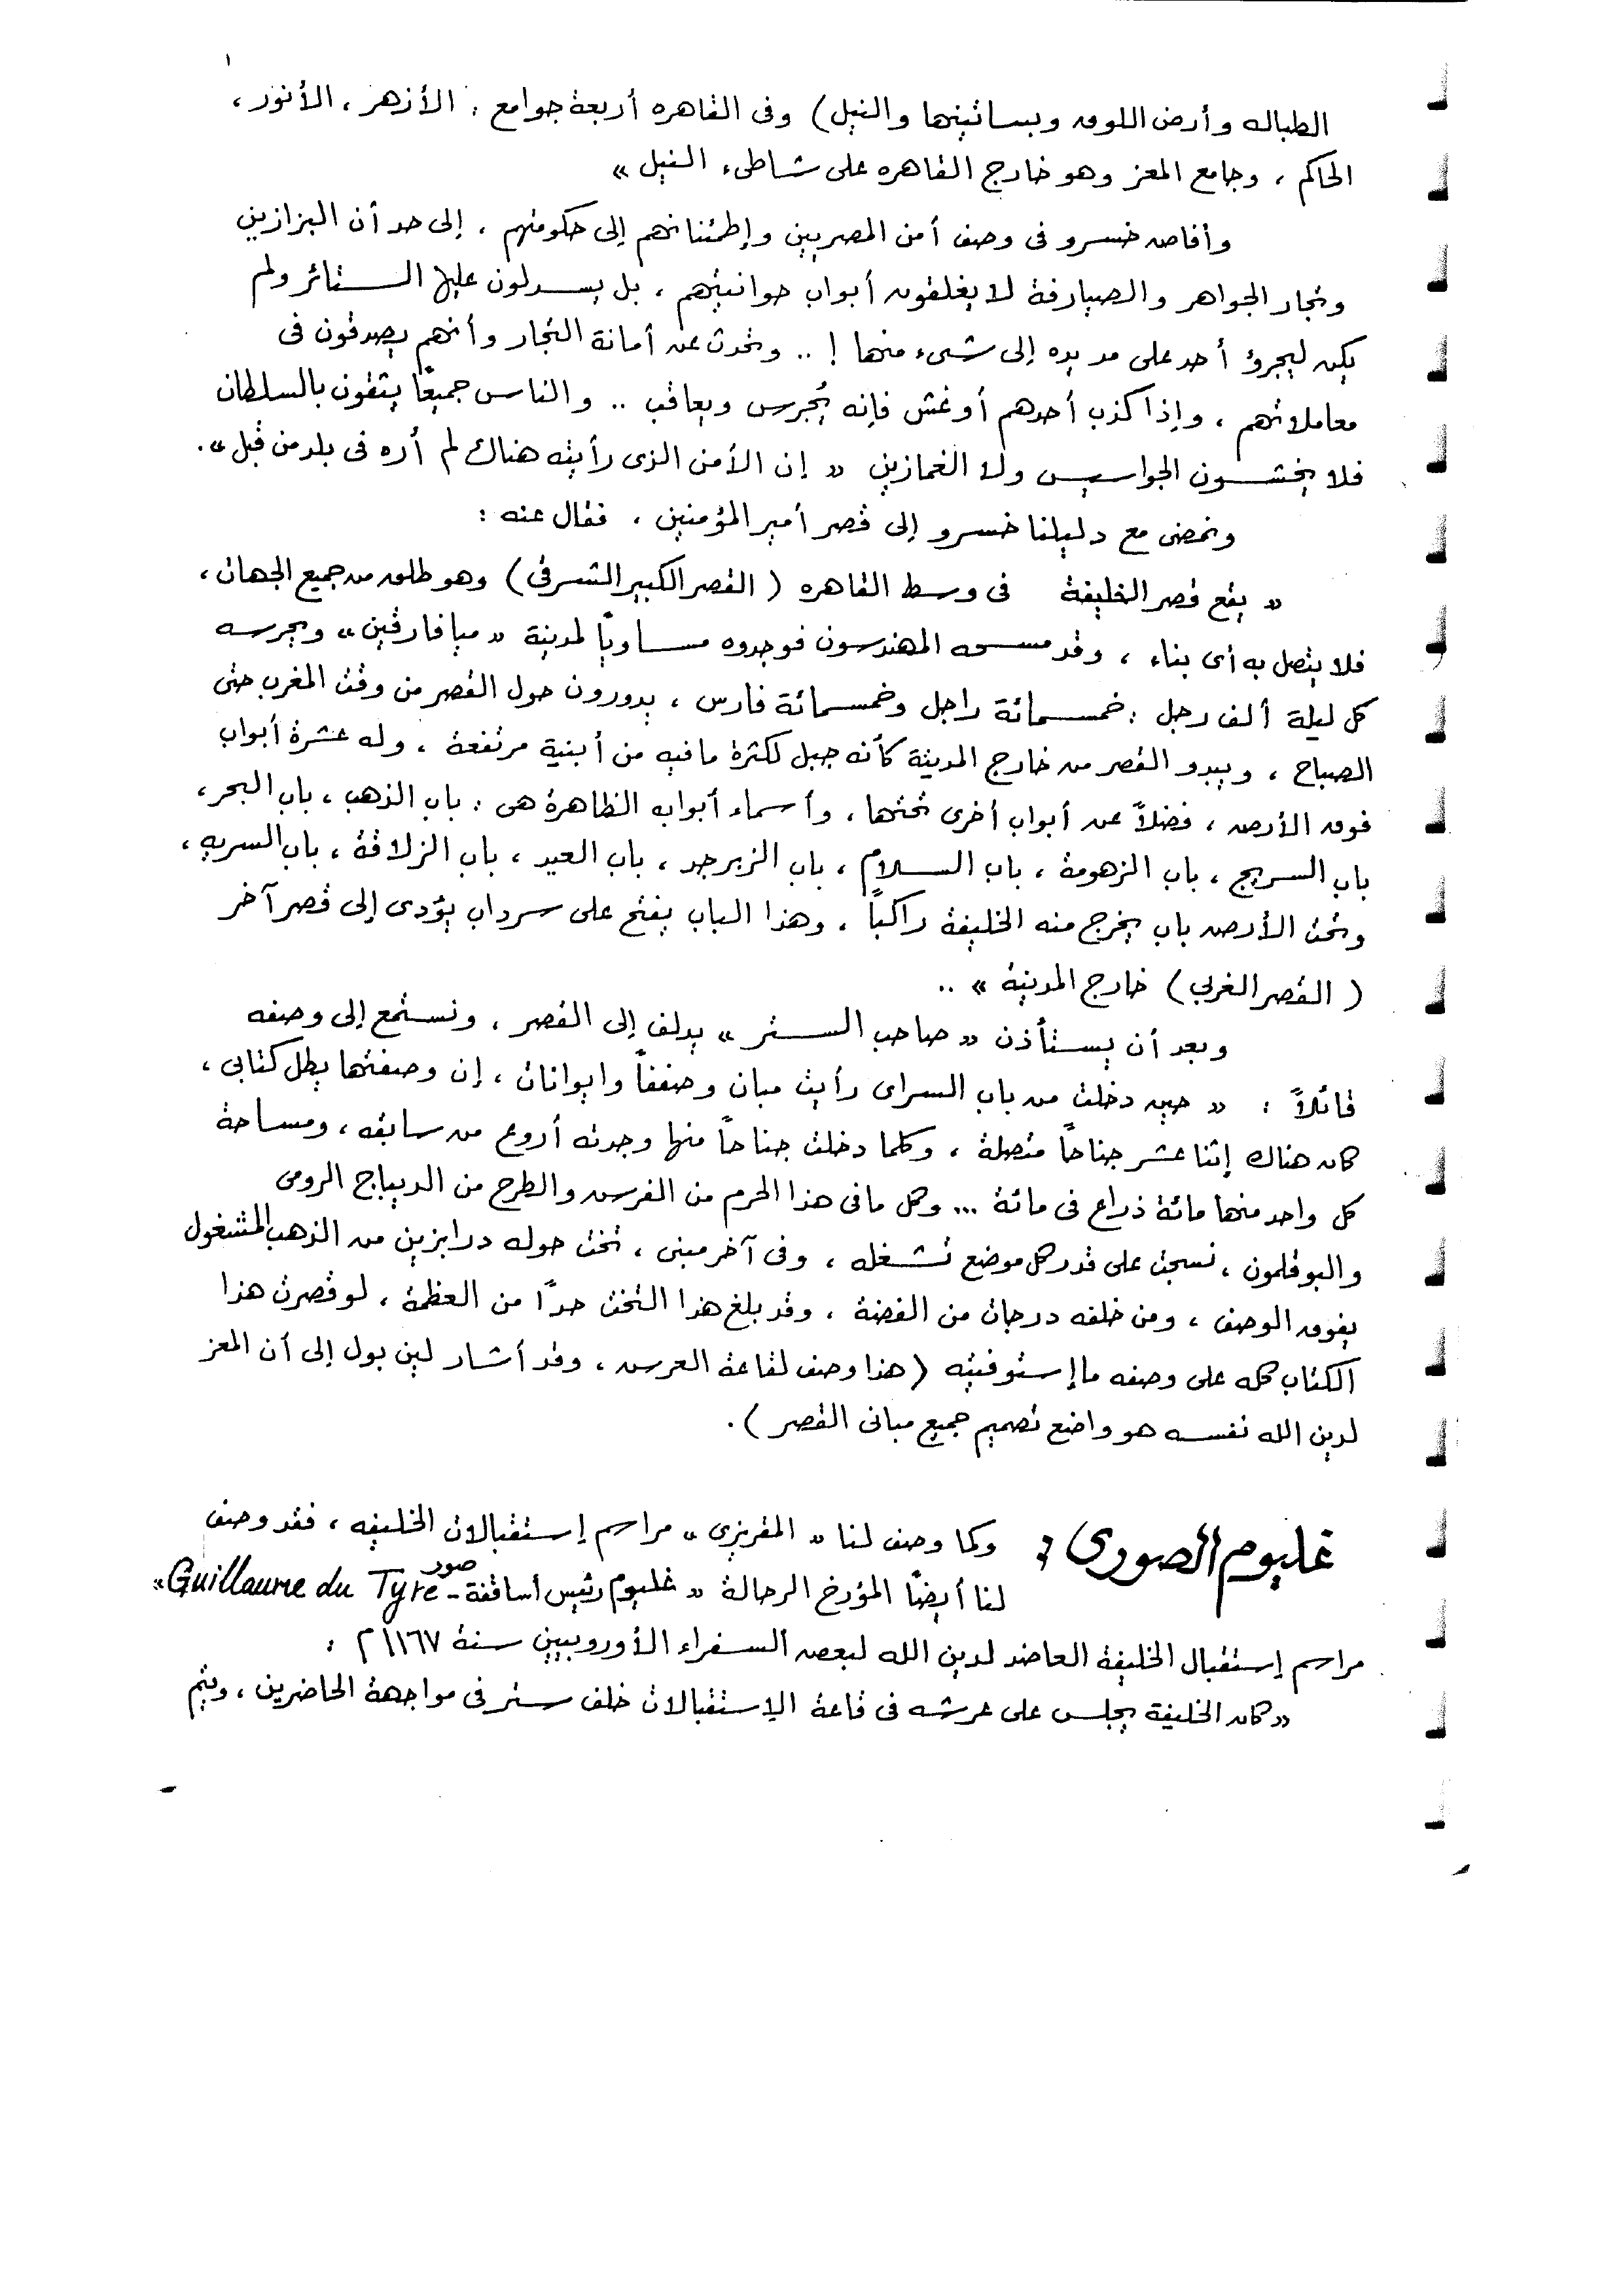 ١
الطباله وأرض اللوق وبساتينها والنيل) وفى القاهره أربعة جوامع : الأزهر ، الأنور ،
الحاكم ، وجامع المعز وهو خارج القاهره على شاطىء النيل »
وأفاض خسرو فى وصف أمن المصريين وإطمئنانهم إلى حكومتهم . إلى حد أن البزازين
وتجار الجواهر والصيارفة لا يغلقون أبواب حوانيتهم ، بل يسدلون عليها الستائر ولم
يكن ليجرؤ أحد على مد يده إلى شىء منها ! .. وتحدث عن أمانة التجار وأنهم يصدقون فى
معاملاتهم ، وإذا كذب أحدهم أو غش فإنه يُجرس ويعاقب .. والناس جميعًا يثقون بالسلطان
فلا يخشون الجواسيس ولا الغمازين « إن الأمن الذى رأيته هناك لم أره فى بلد من قبل » .
ونمضى مع دليلنا خسرو إلى قصر أمير المؤمنين . فقال عنه :
« يقع قصر الخليفة فى وسط القاهره ( القصر الكبير الشرقى ) وهو طلق من جميع الجهات ،
فلا يتصل به أى بناء ، وقد مسحه المهندسون فوجدوه مساويًا لمدينة « ميافارقين » ويحرسه
كل ليلة ألف رجل : خمسمائة راجل وخمسمائة فارس ، يدورون حول القصر من وقت المغرب حتى
الصباح ، ويبدو القصر من خارج المدينة كأنه جبل لكثرة مافيه من أبنية مرتفعة ، وله عشرة أبواب
فوق الأرض ، فضلاً عن أبواب أخرى تحتها ، وأسماء أبوابه الظاهرة هى : باب الذهب ، باب البحر ،
باب السريج ، باب الزهومة ، باب السلام ، باب الزبرجد ، باب العيد ، باب الزلاقة ، باب السريه ،
وتحت الأرض باب يخرج منه الخليفة راكباً ، وهذا الباب يفتح على سرداب يؤدى إلى قصر آخر
( القصر الغربي ) خارج المدينة » ..
وبعد أن يستأذن « صاحب الستر » يدلف إلى القصر ، ونستمع إلى وصفه
قائلاً : « حين دخلت من باب السراى رأيت مبان وصففاً وايوانات ، إن وصفتها يطل كتابى ،
كان هناك إثنا عشر جناحاً متصلة ، وكلما دخلت جناحاً منها وجدته أروع من سابقه ، ومساحة
كل واحد منها مائة ذراع فى مائة ... وكل مافى هذا الحرم من الفرش والطرح من الديباج الرومى
والبوقلمون ، نسجت على قدر كل موضع تشغله ، وفى آخر مبنى ، تخت حوله درابزين من الذهب المشغول
يفوق الوصف ، ومن خلفه درجات من الفضة ، وقد بلغ هذا التخت حدًا من العظمة ، لو قصرت هذا
الكتاب كله على وصفه ما إستوفيته ( هذا وصف لقاعة العرش ، وقد أشار لين بول إلى أن المعز
لدين الله نفسه هو واضع تصميم جميع مبانى القصر ) .
غليوم الصورى : وكما وصف لنا « المقريزى » مراسم إستقبالات الخليفه ، فقد وصف
لنا أيضًا المؤرخ الرحالة « غليوم رئيس أساقفة صور - Guillaume du Tyre »
مراسم إستقبال الخليفة العاضد لدين الله لبعض السفراء الأوروبيين سنة ١١٦٧م :
« كان الخليفة يجلس على عرشه فى قاعة الإستقبالات خلف ستر فى مواجهة الحاضرين ، ويتم